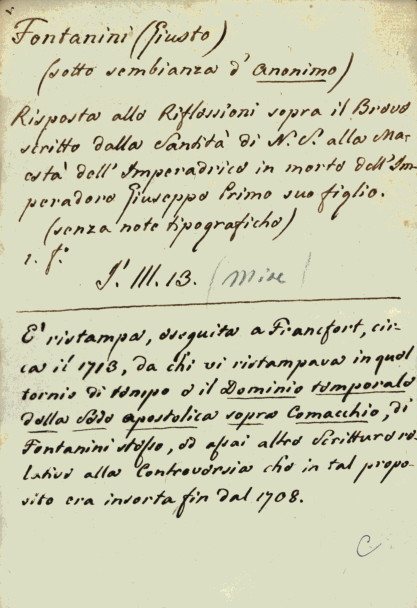 Fontanini (Giusto)
(sotto sembianza d' Anonimo)
Risposta alle Riflessioni sopra il Breve
scritto dalla Santità di N. S. alla Ma-
està dell' Imperadrice in morte dell' Im-
peradore Giuseppe Primo suo figlio.
(senza note tipografiche)
1. f.°
J. III. 13. (Misc)
E' ristampa, eseguita a Francfort, cir-
ca il 1713, da chi vi ristampava in quel
tornio di tempo e il Dominio temporale
della Sede apostolica sopra Comacchio, di
Fontanini stesso, ed assai altre Scritture re-
lative alla Controversia che in tal propo-
sito era insorta fin dal 1708.
C